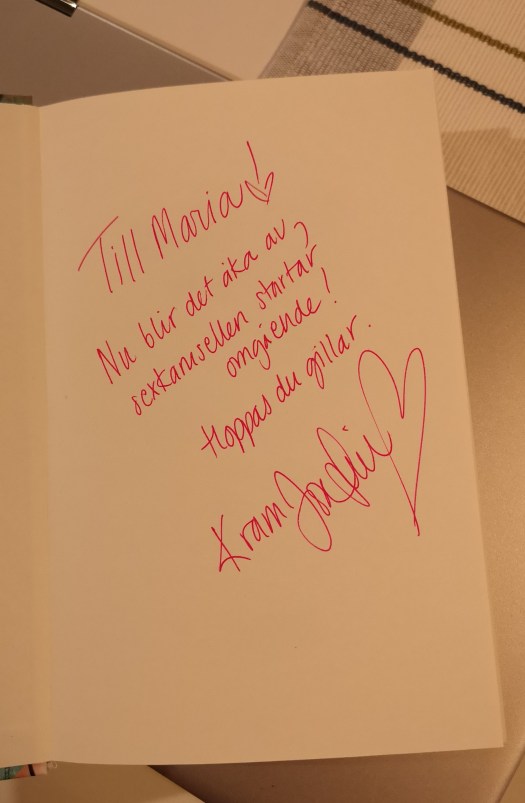 Till Maria!
Nu blir det åka av,
sexkarusellen startar
omgående!
Hoppas du gillar.
Kram